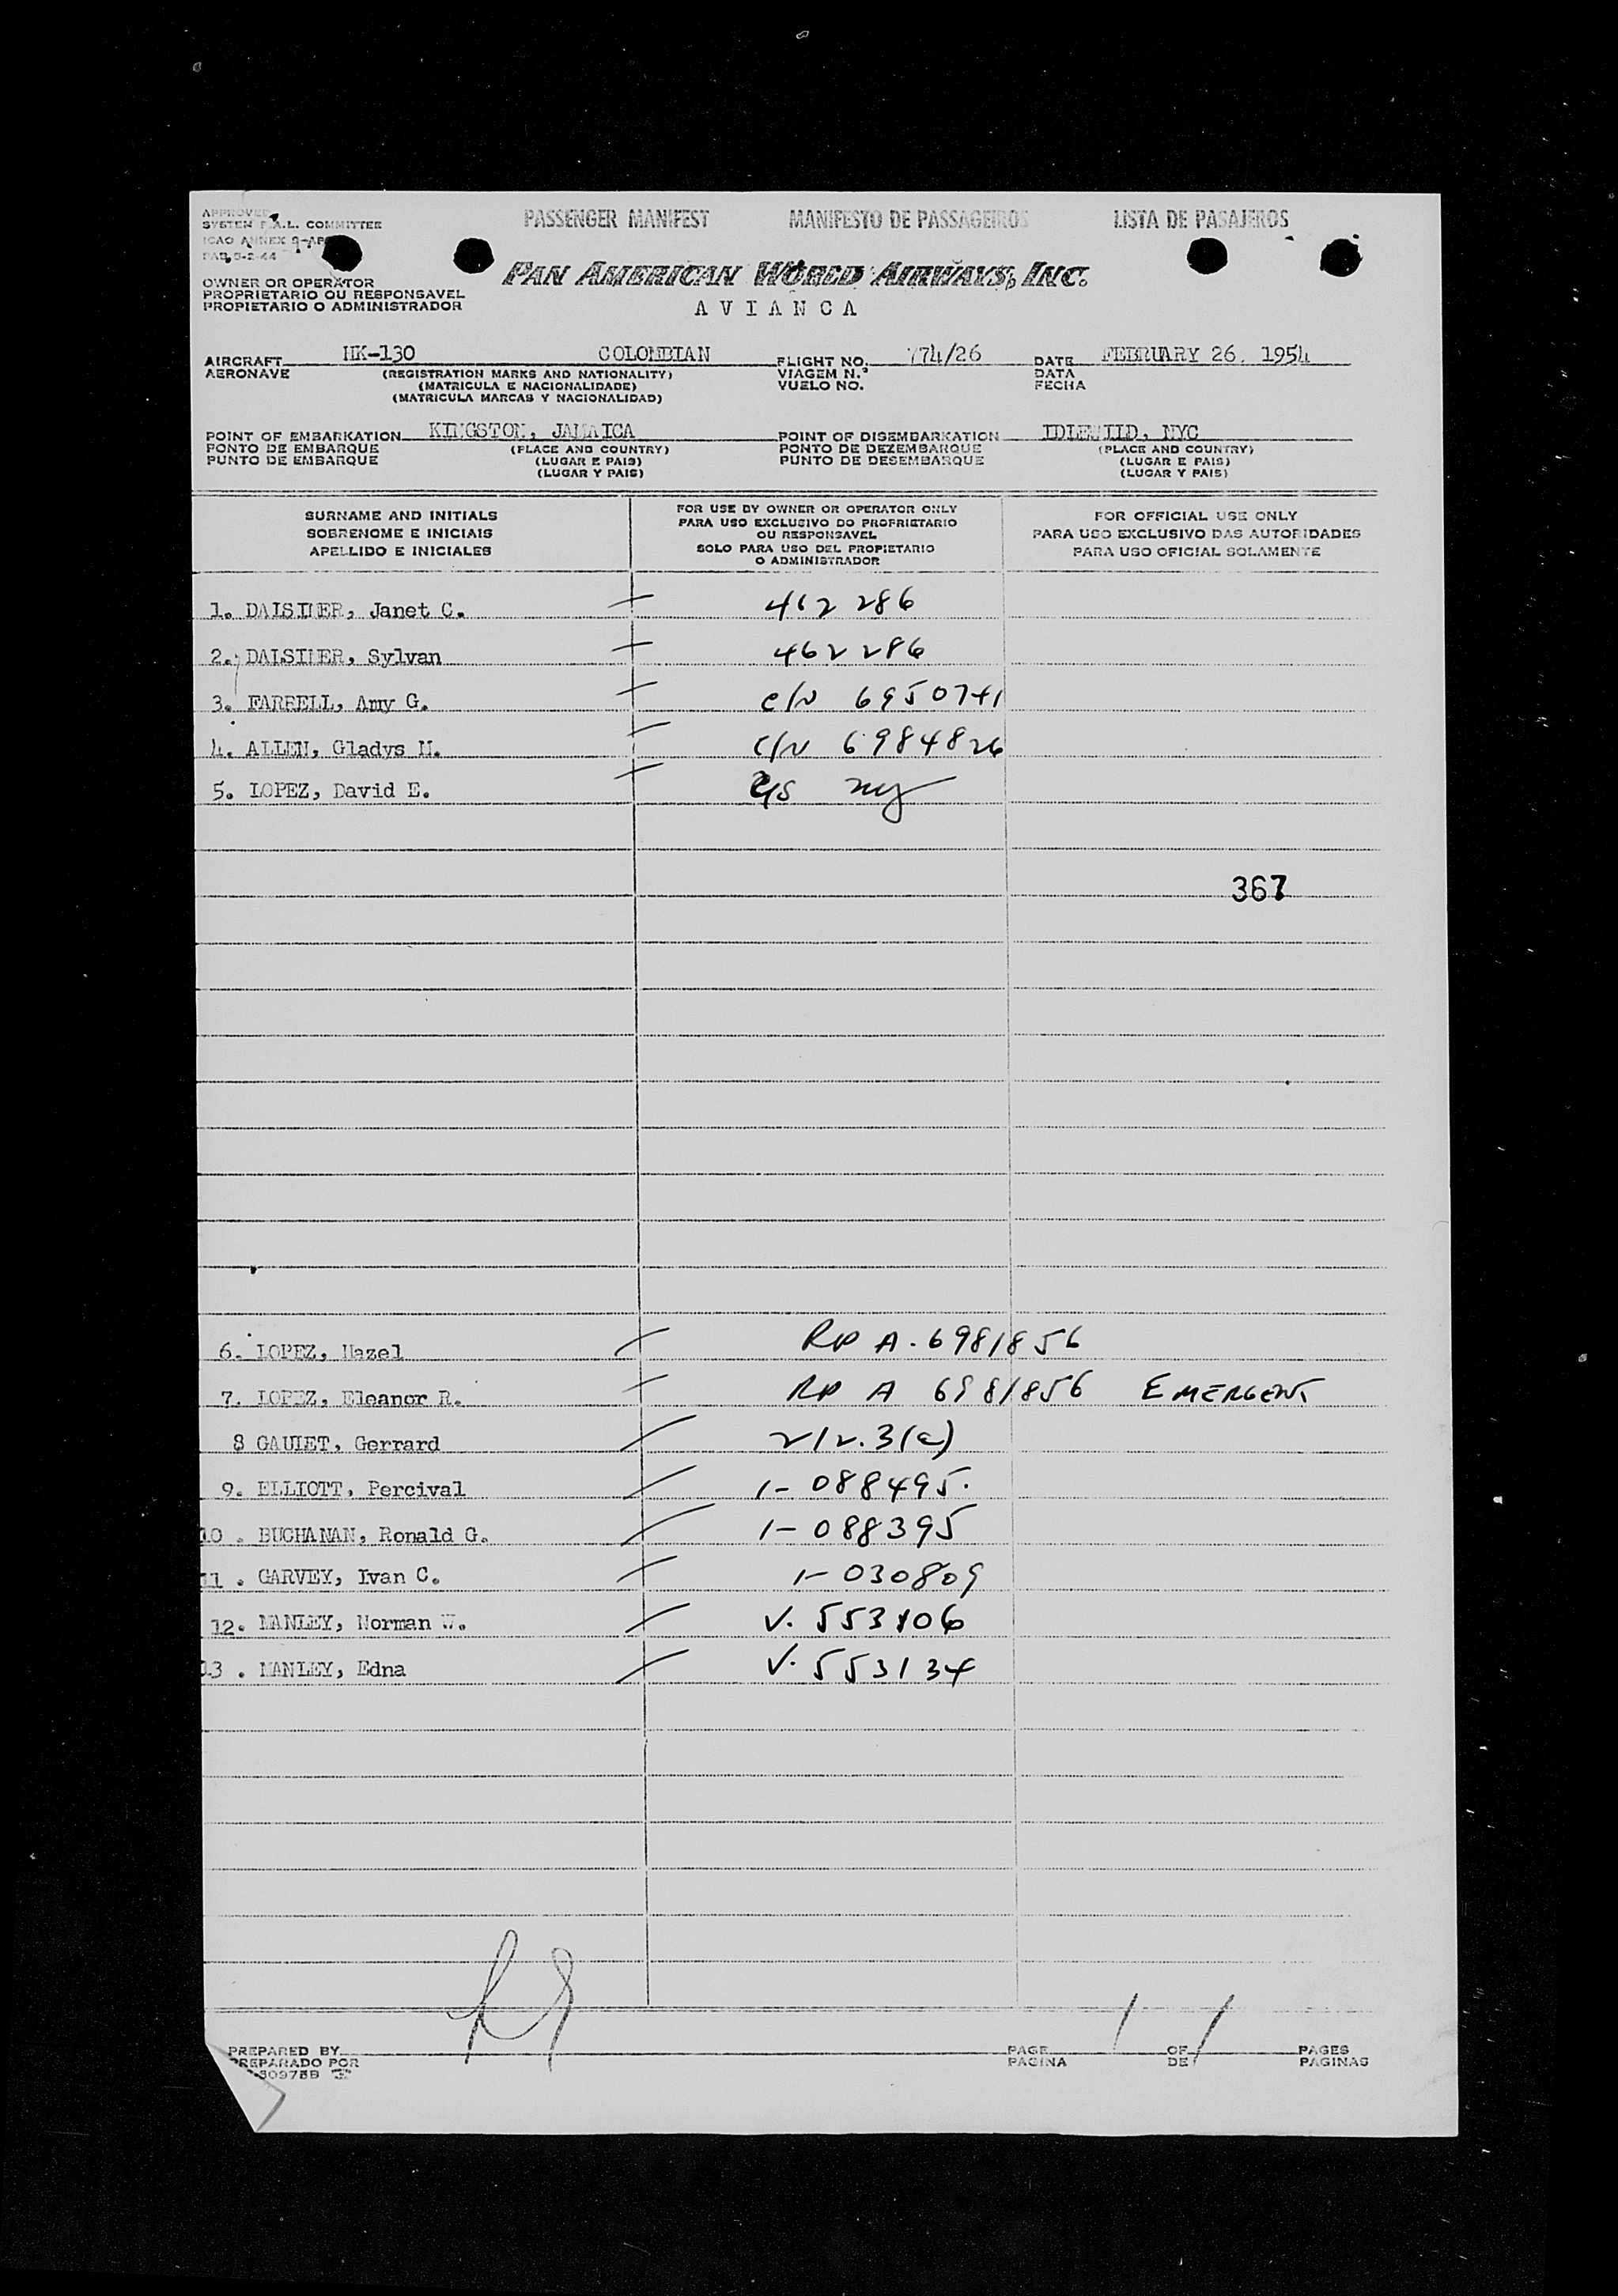 APPROVED
SYSTEM F.A.L. COMMITTEE
ICAO ANNEX 9-AP
PAB 9-2-44
PASSENGER MANIFEST MANIFESTO DE PASSAGEIROS LISTA DE PASAJEROS
PAN AMERICAN WORLD AIRWAYS, INC.
AVIANCA
OWNER OR OPERATOR
PROPRIETARIO OU RESPONSAVEL
PROPIETARIO O ADMINISTRADOR
AIRCRAFT HK-130 COLOMBIAN FLIGHT NO. 774/26 DATE FEBRUARY 26, 1954
AERONAVE (REGISTRATION MARKS AND NATIONALITY) VIAGEM N.º DATA
(MATRICULA E NACIONALIDADE) VUELO NO. FECHA
(MATRICULA MARCAS Y NACIONALIDAD)
POINT OF EMBARKATION KINGSTON, JAMAICA POINT OF DISEMBARKATION IDLEWILD, NYC
PONTO DE EMBARQUE (PLACE AND COUNTRY) PONTO DE DEZEMBARQUE (PLACE AND COUNTRY)
PUNTO DE EMBARQUE (LUGAR E PAIS) PUNTO DE DESEMBARQUE (LUGAR E PAIS)
(LUGAR Y PAIS) (LUGAR Y PAIS)
SURNAME AND INITIALS
SOBRENOME E INICIAIS
APELLIDO E INICIALES
FOR USE BY OWNER OR OPERATOR ONLY
PARA USO EXCLUSIVO DO PROPRIETARIO
OU RESPONSAVEL
SOLO PARA USO DEL PROPIETARIO
O ADMINISTRADOR
FOR OFFICIAL USE ONLY
PARA USO EXCLUSIVO DAS AUTORIDADES
PARA USO OFICIAL SOLAMENTE
1. Janet C. 462 286
2. Sylvan 462 286
3. FARRELL, Amy G. c/n 6950741
4. ALLEN, Gladys M. c/n 6984826
5. LOPEZ, David E. ny
367
6. LOPEZ, Hazel RP A. 6981856
7. LOPEZ, Eleanor R. RP A 6981856 EMERGENT
8 GAUIET, Gerrard 212.3(a)
9. ELLIOTT, Percival 1-088495.
10. BUCHANAN, Ronald G. 1-088395
11. GARVEY, Ivan C. 1-030809
12. MANLEY, Norman W. V. 553106
13. MANLEY, Edna V. 553134
PREPARED BY PAGE 1 OF 1 PAGES
PREPARADO POR PAGINA DE PAGINAS